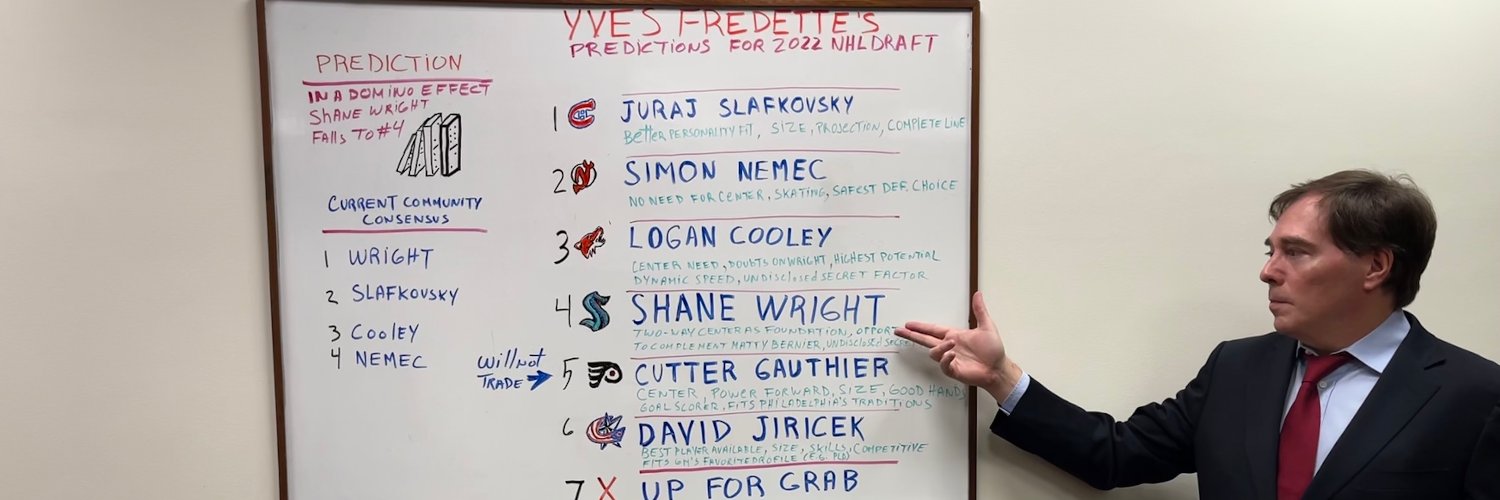 YVES FREDETTE'S
PREDICTIONS FOR 2022 NHL DRAFT
PREDICTION
IN A DOMINO EFFECT
SHANE WRIGHT
FALLS TO #4
CURRENT COMMUNITY
CONSENSUS
1 WRIGHT
2 SLAFKOVSKY
3 COOLEY
4 NEMEC
1 JURAJ SLAFKOVSKY
BETTER PERSONALITY FIT, SIZE, PROJECTION, COMPLETE LINE
2 SIMON NEMEC
NO NEED FOR CENTER, SKATING, SAFEST DEF. CHOICE
3 LOGAN COOLEY
CENTER NEED, DOUBTS ON WRIGHT, HIGHEST POTENTIAL
DYNAMIC SPEED, UNDISCLOSED SECRET FACTOR
4 SHANE WRIGHT
TWO-WAY CENTER AS FOUNDATION,
TO COMPLEMENT MATTY BERNIER, UNDISCLOSED
WILL NOT
TRADE
5 CUTTER GAUTHIER
CENTER, POWER FORWARD, SIZE, GOOD HANDS
GOAL SCORER, FITS PHILADELPHIA'S TRADITIONS
6 DAVID JIRICEK
BEST PLAYER AVAILABLE, SIZE, SKILLS, COMPETITIVE
FITS GM'S FAVORITE PROFILE (E.G. PLD)
7 X UP FOR GRAB